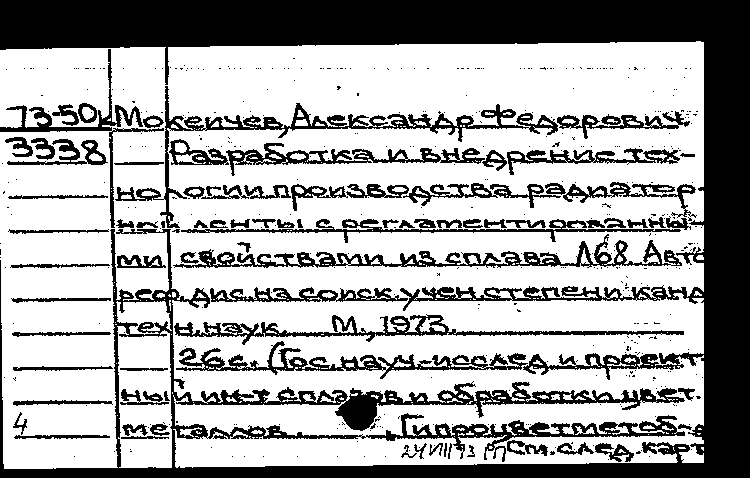 73-50к Мокеичев, Александр Федорович.
3338 Разработка и внедрение тех-
нологии производства радиатор-
ной ленты с регламентированны-
ми свойствами из сплава Л68. Авто
реф. дис. на соиск. учен. степени канд
техн. наук. М., 1973.
26 с. (Гос. науч.-исслед и проект-
ный ин-т сплавов и обработки цвет.
4 металлов. "Гипроцветметоб-
24 VIII 73 См. след. карт